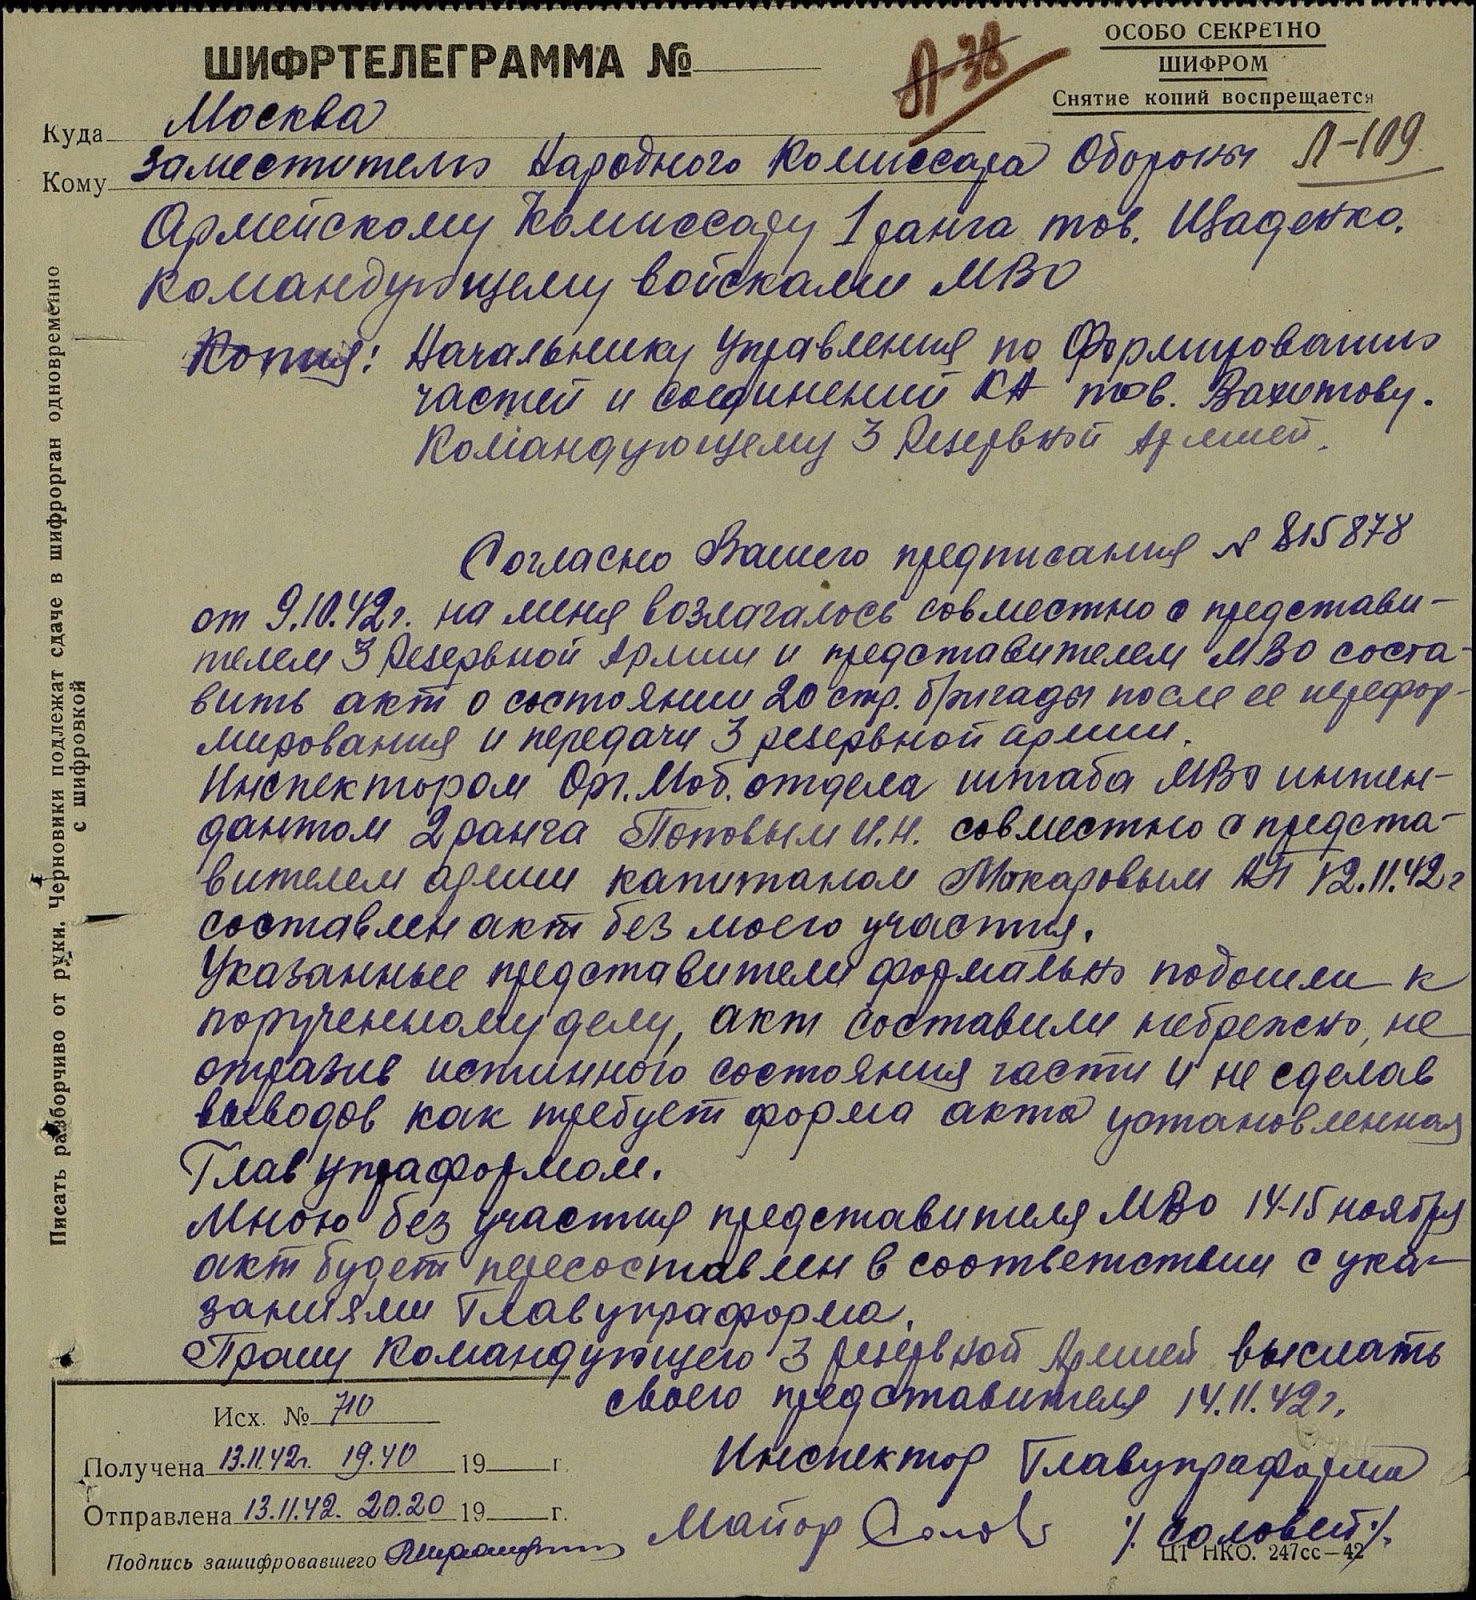 ШИФРТЕЛЕГРАММА №
ОСОБО СЕКРЕТНО
ШИФРОМ
Снятие копий воспрещается
Л-38
Л-109
Куда Москва
Кому Заместителю Народного Комиссара Обороны
Армейскому Комиссару 1 ранга тов. Щаденко.
Командующему войсками МВО
Копия: Начальнику Управления по Формированию
частей и соединений КА тов. Вахитову.
Командующему 3 Резервной Армией.
Согласно Вашего предписания № 815878
от 9.10.42г. на меня возлагалось совместно с представи-
телем 3 Резервной Армии и представителем МВО соста-
вить акт о состоянии 20 стр. бригады после ее перефор-
мирования и передачи 3 резервной армии.
Инспектором Орг. Моб. отдела штаба МВО интен-
дантом 2 ранга Поповым И.Н. совместно с предста-
вителем армии капитаном Макаровым АП 12.11.42г
составлен акт без моего участия.
Указанные представители формально подошли к
порученному делу, акт составили небрежно, не
отразив истинного состояния части и не сделав
выводов как требует форма акта установленная
Главупраформом.
Мною без участия представителя МВО 14-15 ноября
акт будет пересоставлен в соответствии с ука-
заниями Главупраформа.
Прошу Командующего 3 резервной Армией выслать
своего представителя 14.11.42г.
Инспектор Главупраформа
Майор Солов /. Соловей./.
Исх. № 710
Получена 13.11.42г. 19.40 19 г.
Отправлена 13.11.42. 20.20 19 г.
Подпись зашифровавшего
ЦТ НКО. 247сс—42
Писать разборчиво от руки. Черновики подлежат сдаче в шифрорган одновременно
с шифровкой